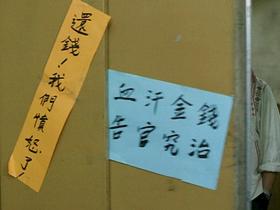 還錢！我們憤怒了！
血汗金錢
告官究治